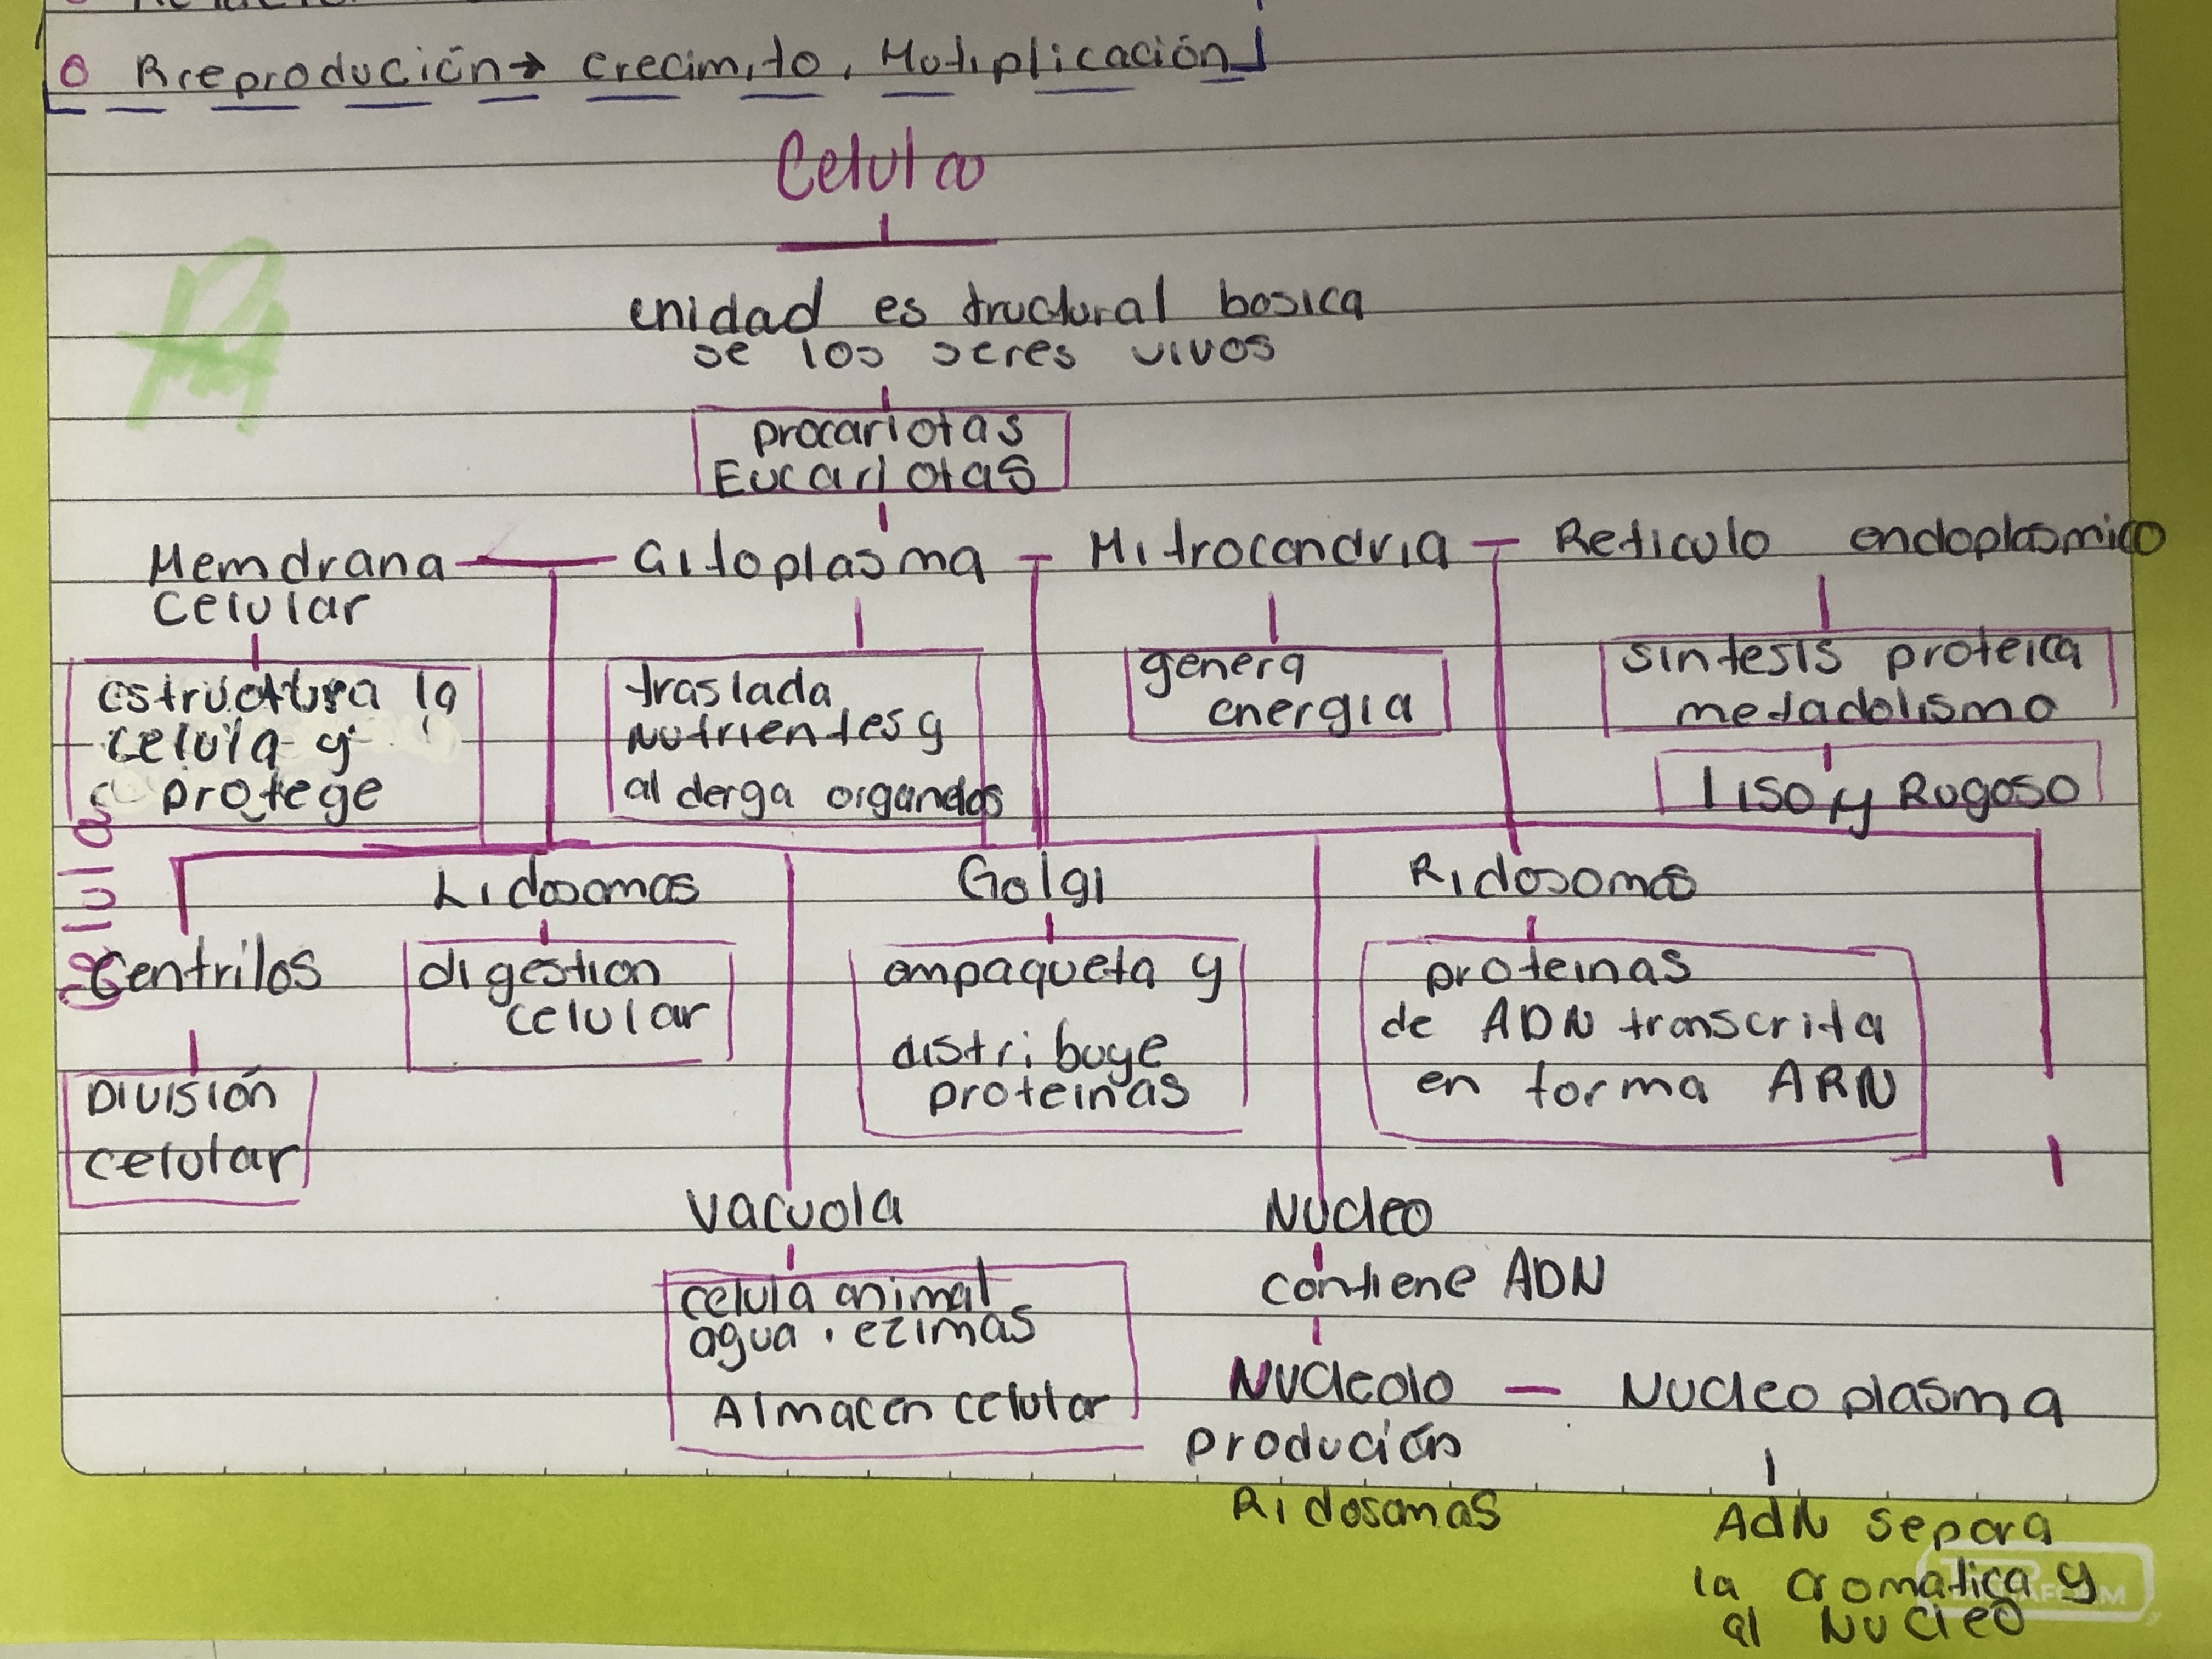 O Rreprodución → crecimito, Mutiplicación
Celula
enidad es tructural bosica
se los seres vivos
procariotas
Eucariotas
Memdrana
celular
Citoplasma
Mitrocondria
Reticulo endoplasmico
estructura la
celula y
protege
traslada
nutrientes y
al derga organdos
genera
energia
sintesis proteica
metadolismo
liso y Rugoso
celulas
Lidosomas
Golgi
Ridosomas
Centrilos
digestion
celular
empaqueta y
distribuye
proteinas
proteinas
de ADN transcrita
en forma ARN
División
celular
vacuola
Nucleo
celula animal
agua . ezimas
Almacen celular
contiene ADN
Nucleolo
Nucleo plasma
produción
Ridosomas
AdN separa
la cromatica y
al Nucleo